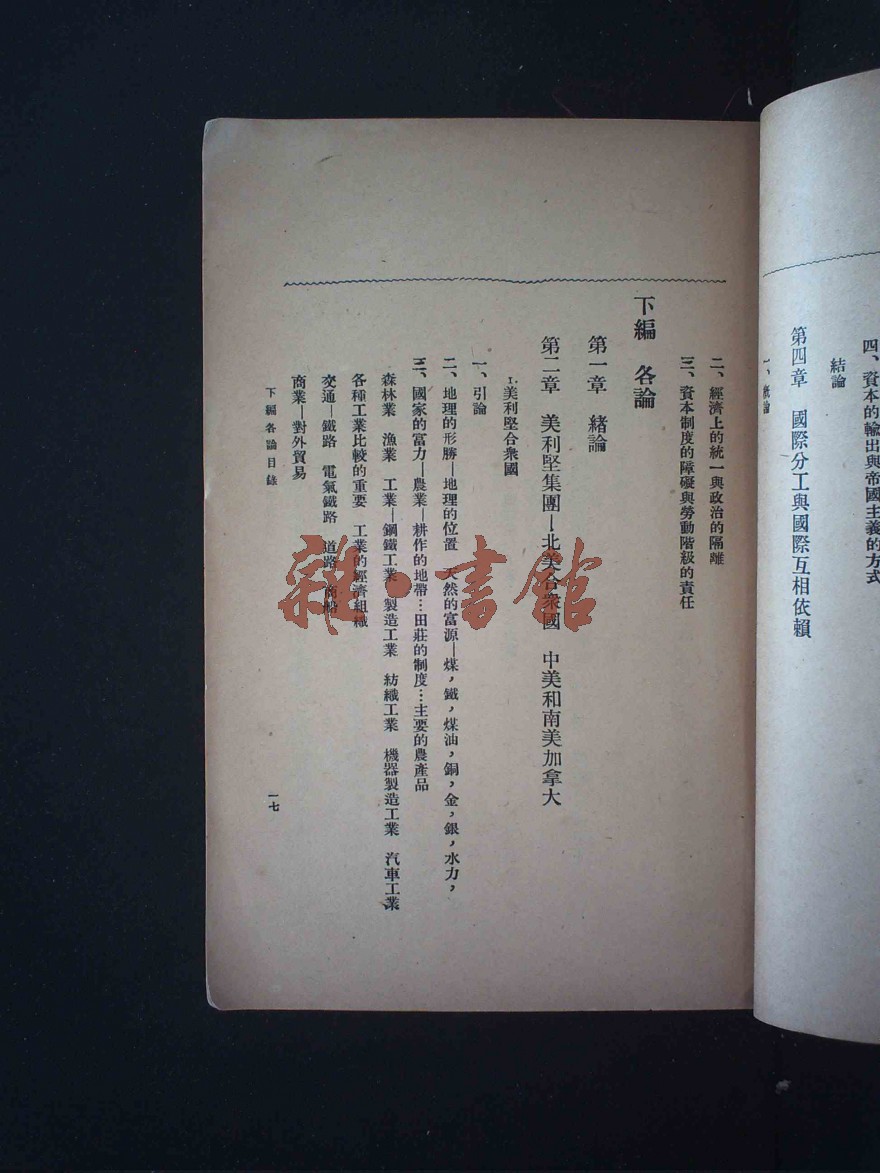 四、資本的輸出與帝國主義的方式
結論
第四章　國際分工與國際互相依賴
一、緒論
二、經濟上的統一與政治的隔離
三、資本制度的障礙與勞動階級的責任
下編　各論
第一章　緒論
第二章　美利堅集團—北美合衆國　中美和南美加拿大
I.美利堅合衆國
一、引論
二、地理的形勝—地理的位置　天然的富源—煤，鐵，煤油，銅，金，銀，水力，
三、國家的富力—農業—耕作的地帶…田莊的制度…主要的農產品
森林業　漁業　工業—鋼鐵工業　製造工業　紡織工業　機器製造工業　汽車工業
各種工業比較的重要　工業的經濟組織
交通—鐵路　電氣鐵路　道路　商船
商業—對外貿易
下編各論目錄
一七
雜·書館